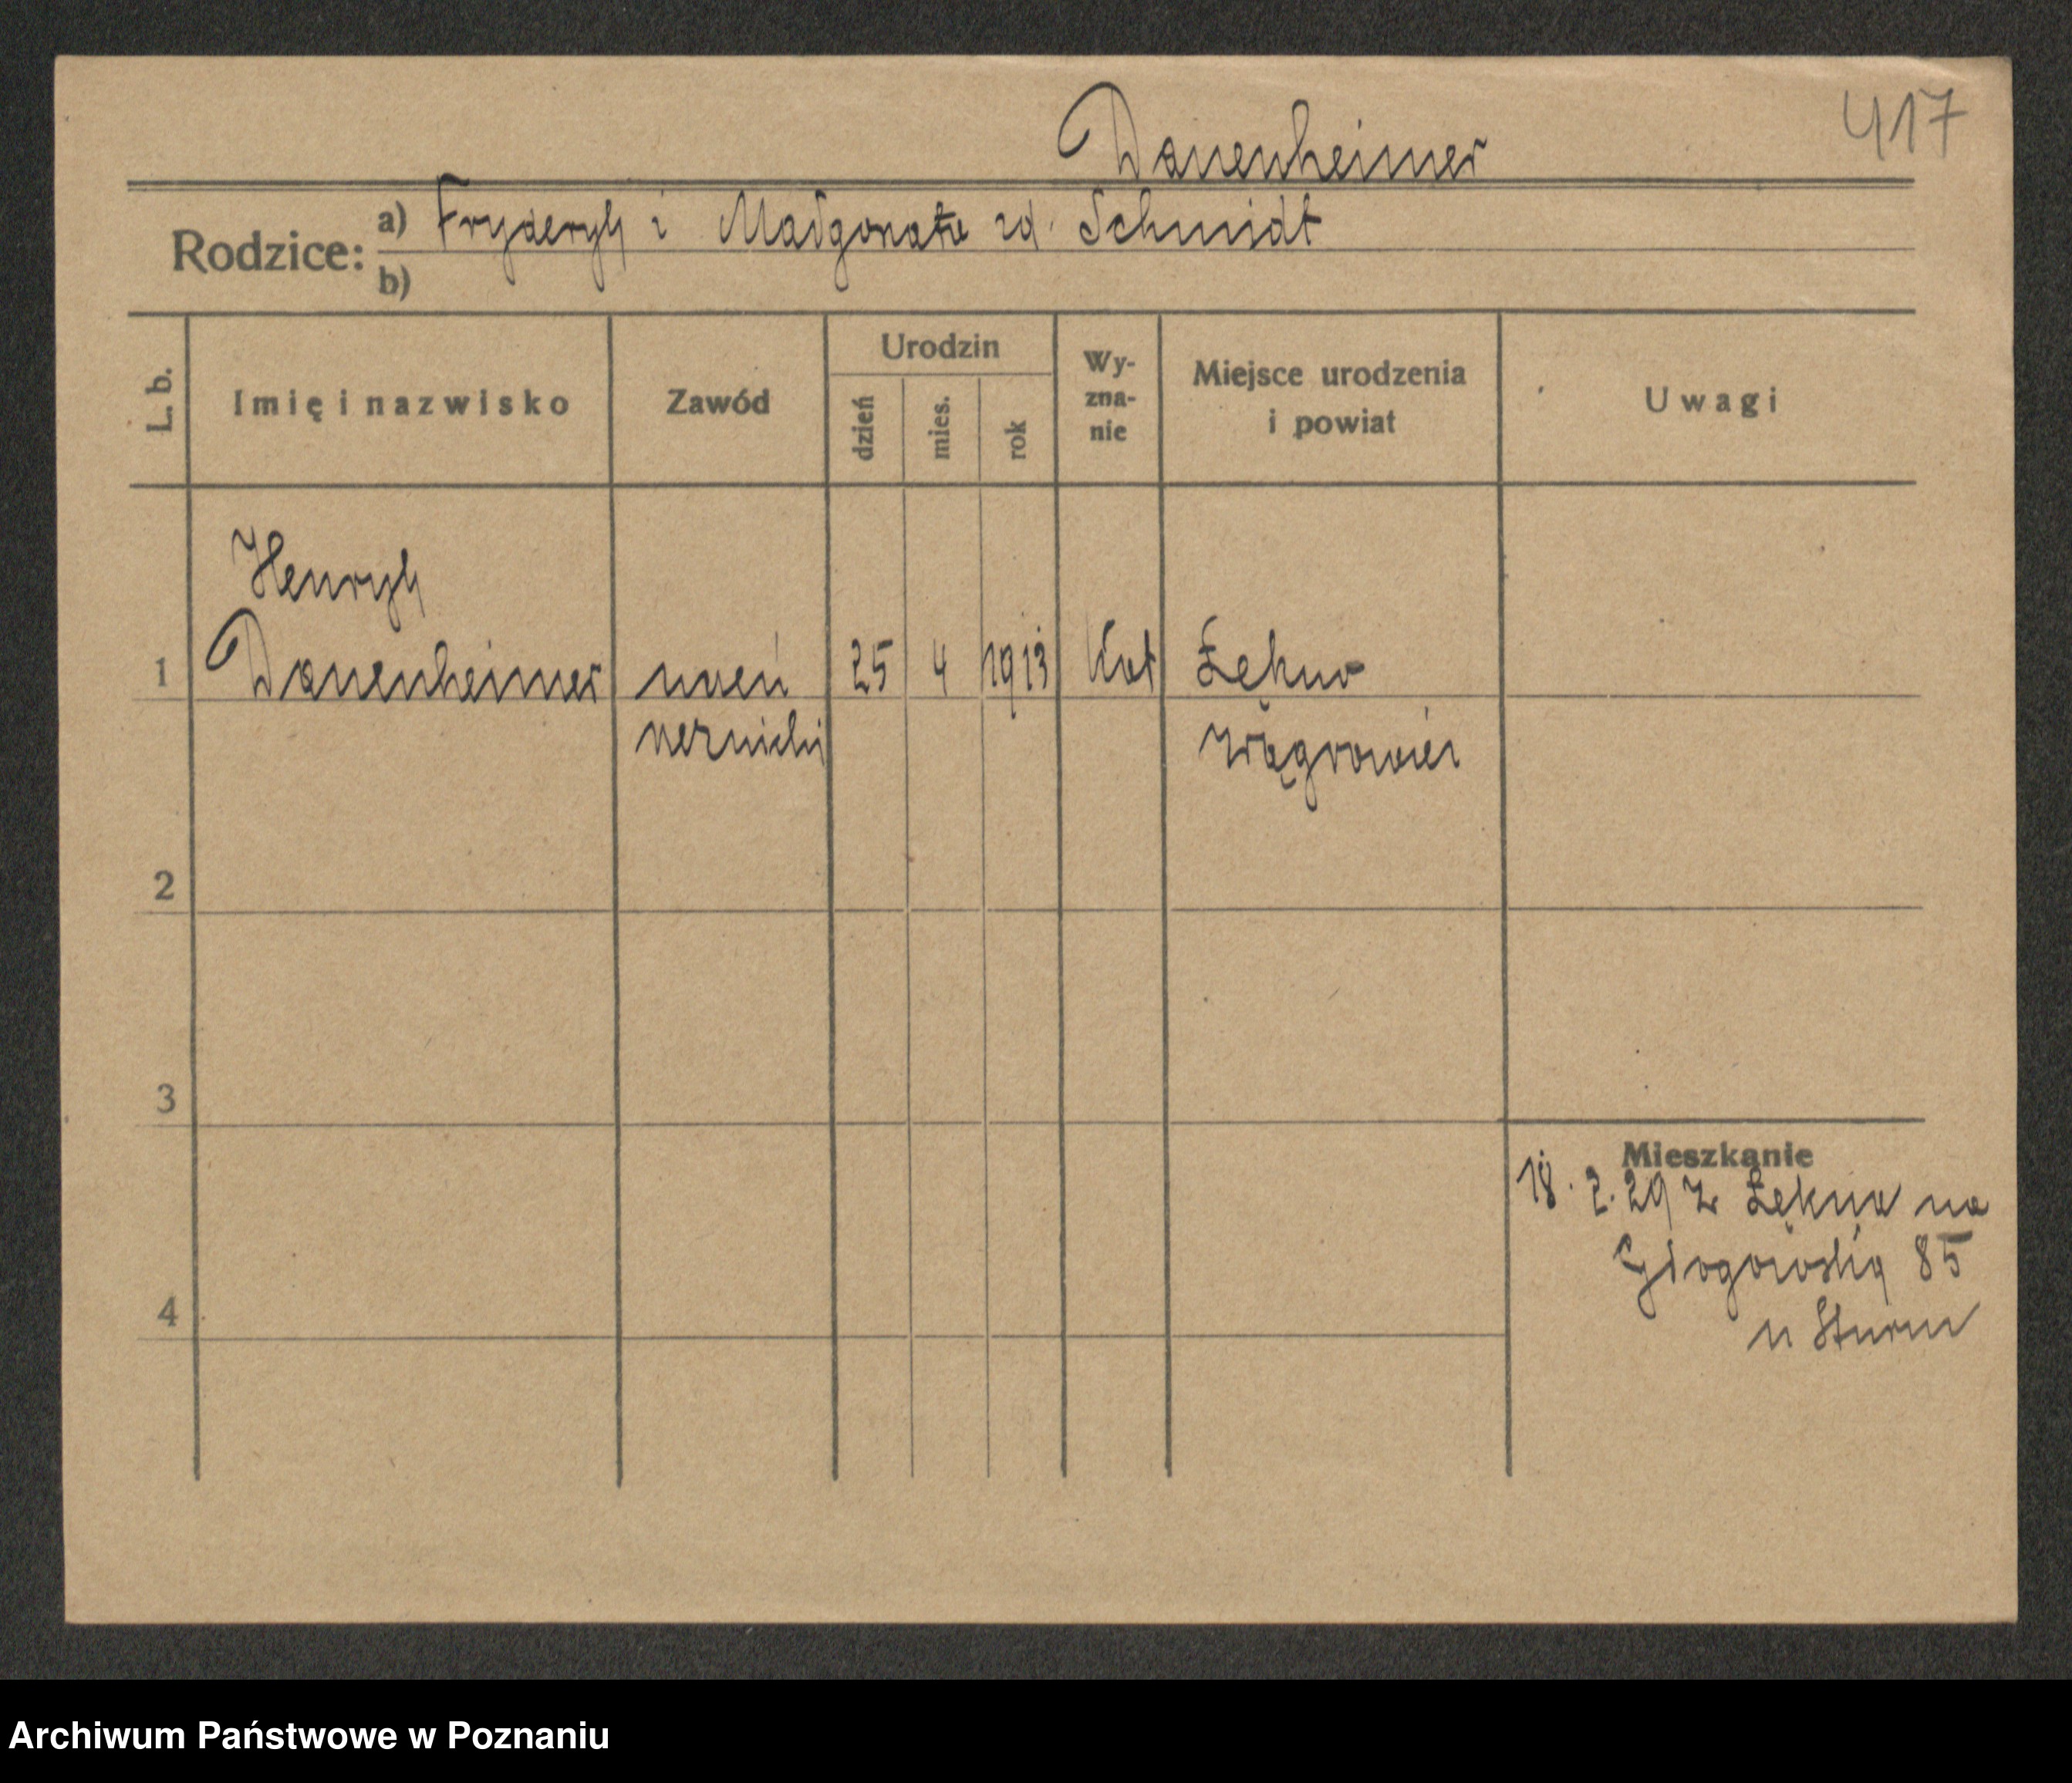 Danenheimer
417
Rodzice: a) Fryderyk i Małgorzata zd. Schmidt
b)
L. b.
Imię i nazwisko
Zawód
Urodzin
dzień
mies.
rok
Wy-
zna-
nie
Miejsce urodzenia
i powiat
Uwagi
Henryk
1 Danenheimer uczeń 25 4 1913 Kat Łekno
rzeźnicki Wągrowiec
2
3
Mieszkanie
18. 2. 29 z Łekna na
Głogowską 85
4
u Sturm
Archiwum Państwowe w Poznaniu